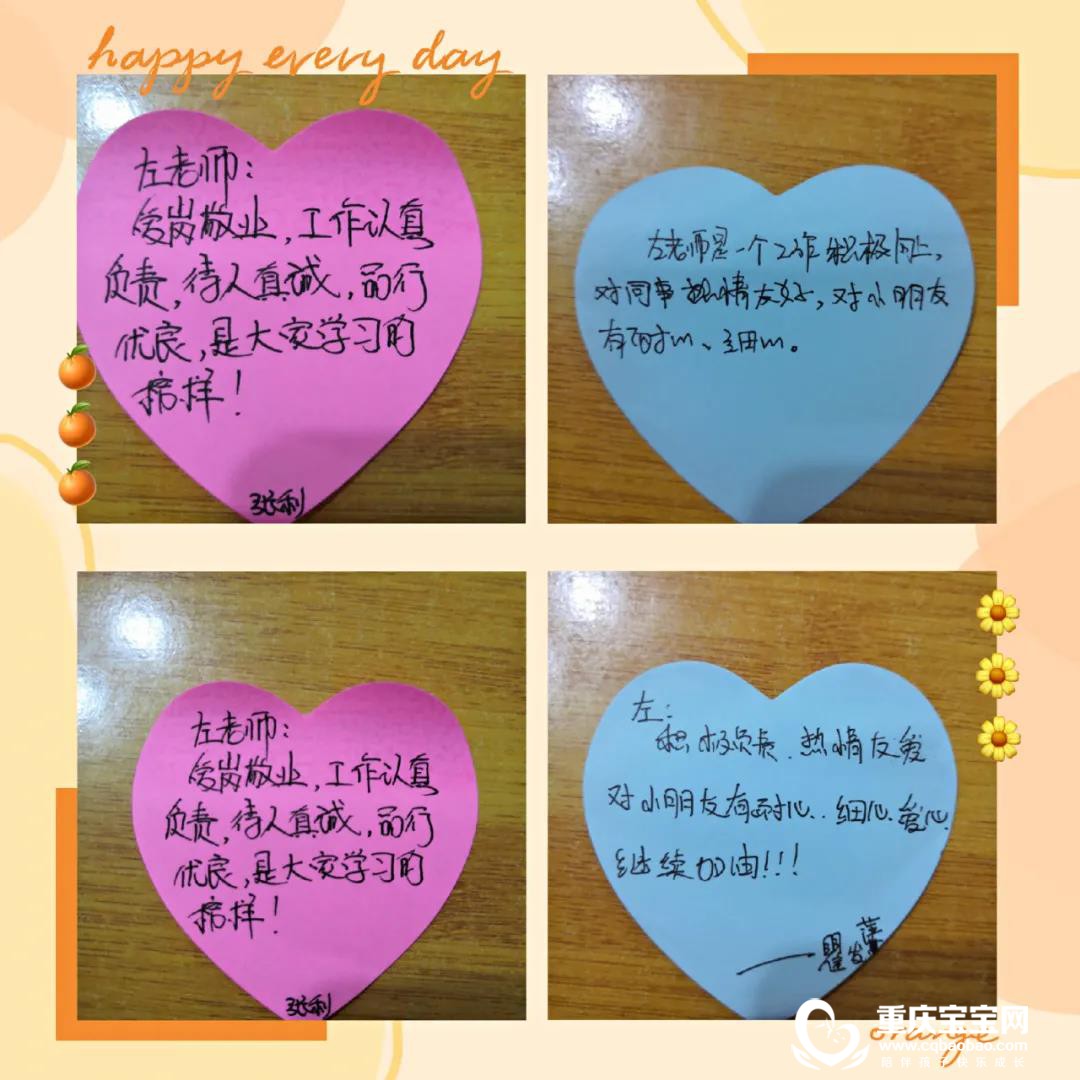 happy every day
左老师：
爱岗敬业，工作认真
负责，待人真诚，品行
优良，是大家学习的
榜样！
张利
左老师是一个工作积极向上，
对同事热情友好，对小朋友
有耐心、细心。
左老师：
爱岗敬业，工作认真
负责，待人真诚，品行
优良，是大家学习的
榜样！
张利
左：
积极负责．热情友爱
对小朋友有耐心．．细心．爱心．
继续加油！！！
orange
重庆宝宝网
www.cqbaobao.com
陪伴孩子快乐成长